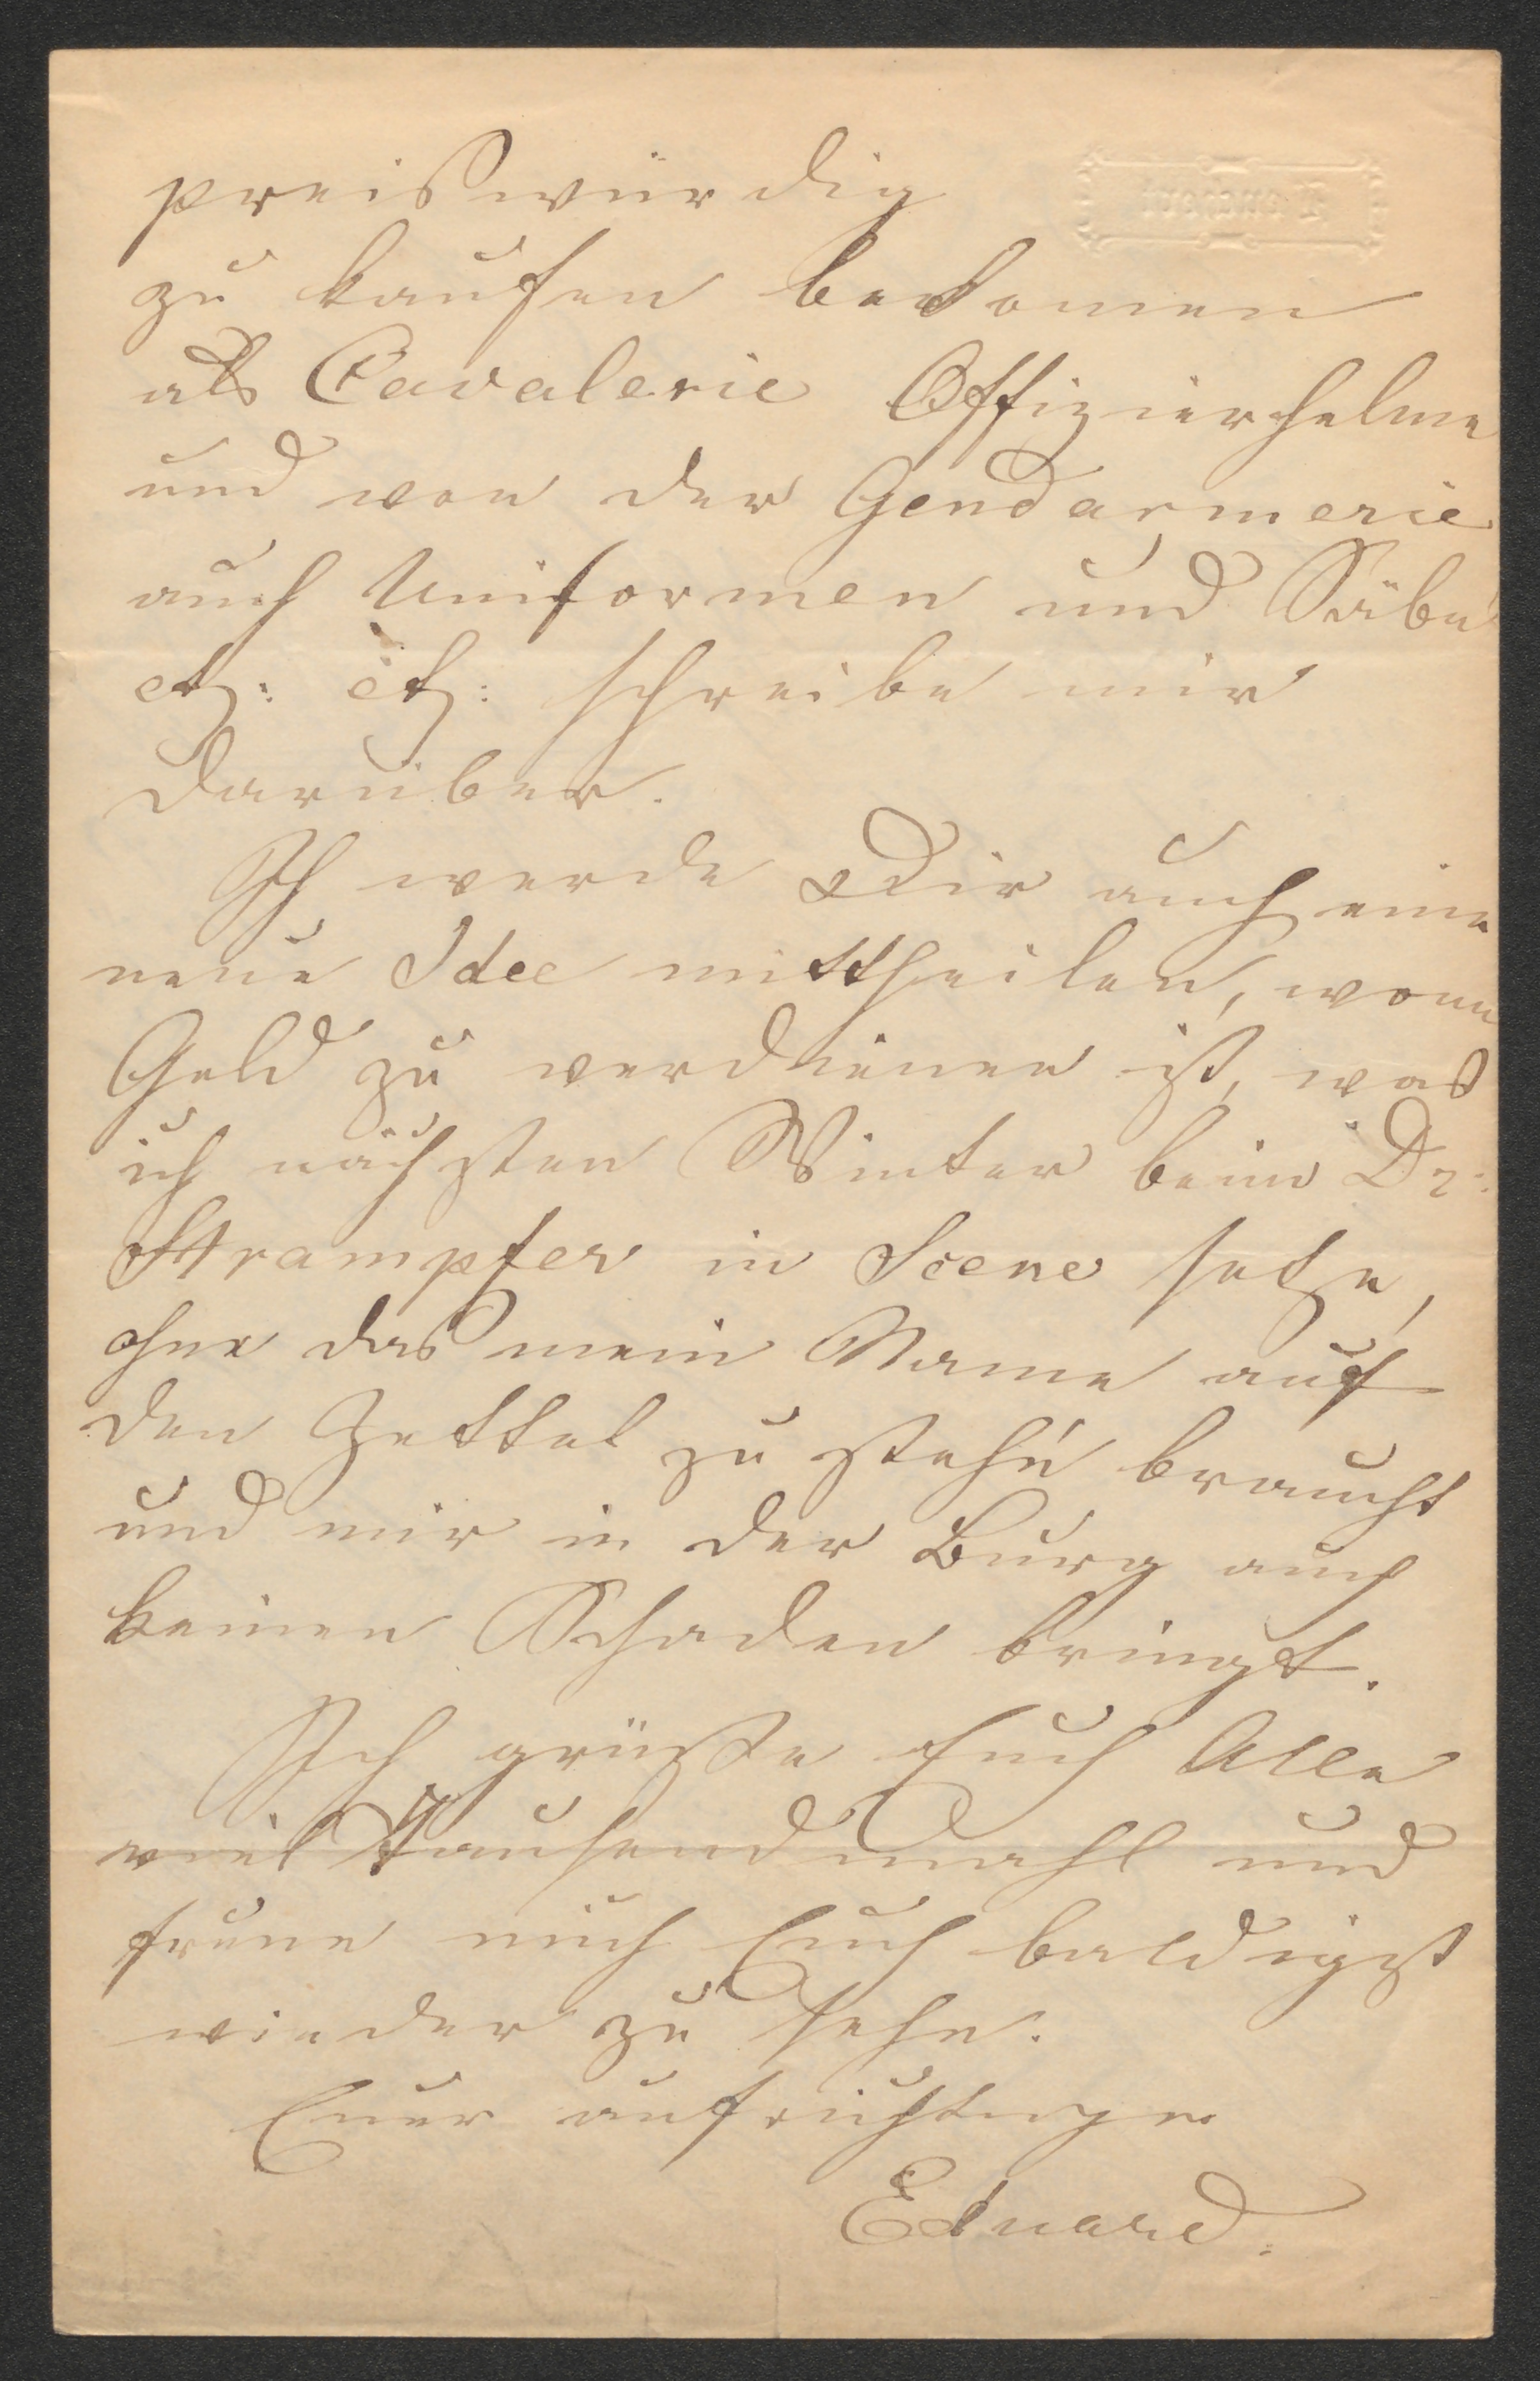 preiswürdig
zu kaufen bekomen
als Cavalerie Offizierhelme
und von der Gendarmerie
auch Uniformen und Säbel
etz: etz: schreibe mir
darüber.
Ich werde Dir auch eine
neue Idee mittheilen, wenn
Geld zu verdienen ist, was
ich nächsten Winter beim Dr:
Strampfer in Scene setze,
ohne das mein Name auf
den Zettel zu stehn braucht
und mir in der Burg auch
keinen Schaden bringt.
Ich grüße Euch Alle
viel Tausendmahl und
freue mich Euch baldigst
wieder zu sehn.
Euer aufrichtiger
Eduard.